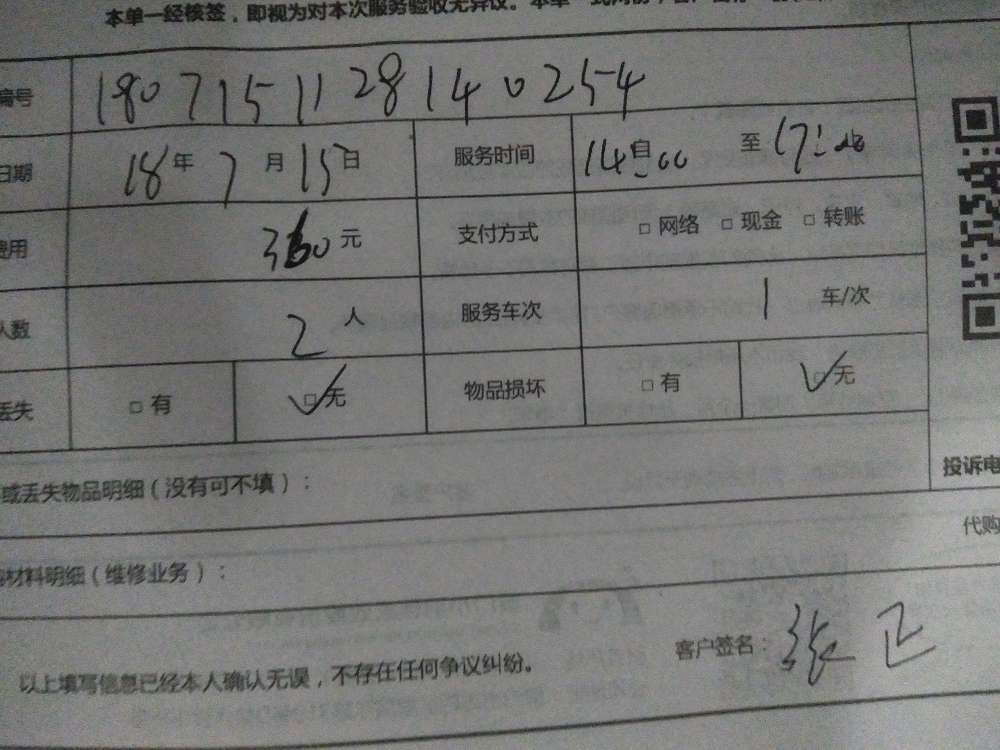 本单一经核签，即视为对本次服务验收无异议。本单一式两份，客户
编号 180715112814 0254
日期 18年7月15日 服务时间 14自:00 至 17:00
费用 360元 支付方式 □ 网络 □ 现金 □ 转账
人数 2人 服务车次 1 车/次
丢失 □ 有 □ 无 物品损坏 □ 有 □ 无
或丢失物品明细（没有可不填）：
投诉电
代购
材料明细（维修业务）：
以上填写信息已经本人确认无误，不存在任何争议纠纷。 客户签名：张正